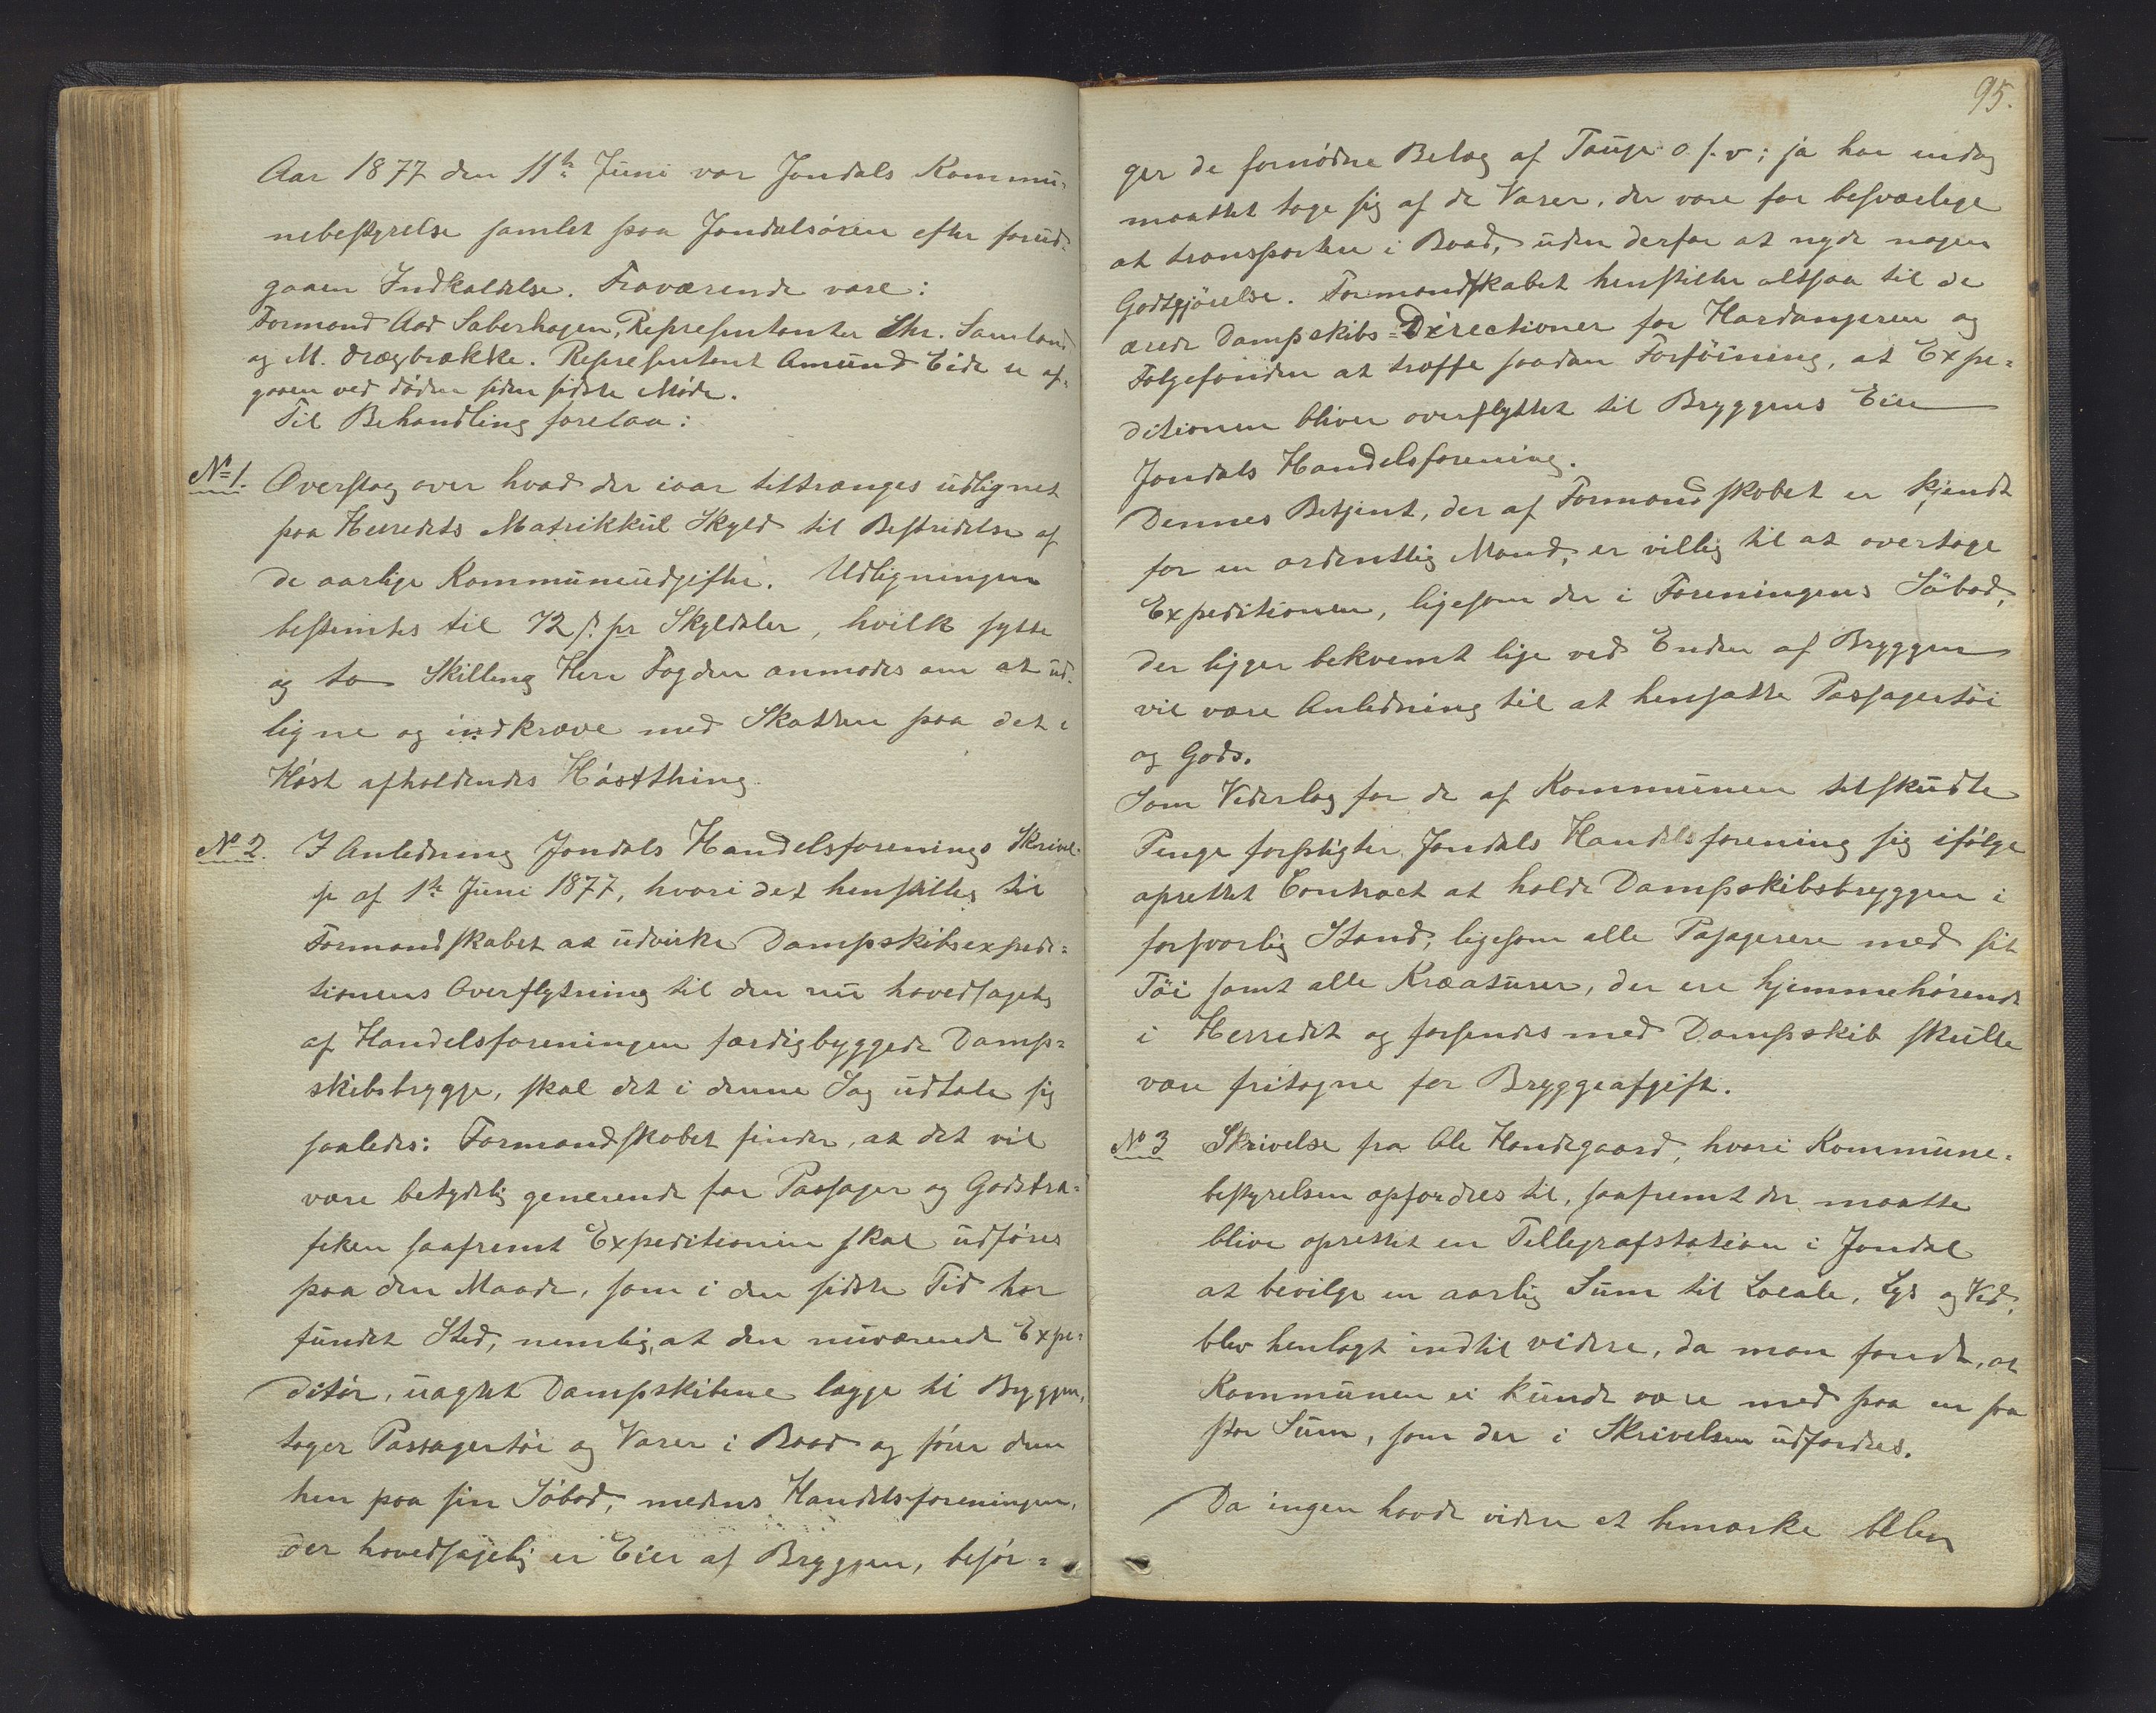 Aar 1877 den 11te Juni var Jondals Kommu-
nebestyrelse samlet paa Jondalsøren efter forud-
gaaen Indkaldelse. Fraværende vare:
Formand Aad Saberhagen, Representanter Chr. Samland
og M. Drægbrække. Representant Amund Eide er af-
gaaen ved døden siden sidste Møde.
Til Behandling forelaa:
No 1. Overslag over hvad der iaar tiltrænges udlignet
paa Herredets Matrikkul Skyld til Bestridelse af
de aarlige Kommuneudgifter. Udligningen
bestemtes til 72 s. pr Skyldaler, hvilke sytti
og to Skilling Herr Fogden anmodes om at ud-
ligne og indkræve med Skatten paa det i
Høst afholdendes Høstthing.
No 2. I Anledning Jondals Handelsforenings Skrivel-
se af 1te Juni 1877, hvori det henstilles til
Formandskabet at udvirke Dampskibsexpedi-
tionens Overflytning til den nu hovedsagelig
af Handelsforeningen færdigbyggede Damp-
skibsbrygge, skal det i denne Sag udtale sig
saaledes: Formandskabet finder, at det vil
være betydelig generende for Passager og Godstra-
fiken saafremt Expeditionen skal udføres
paa den Maade, som i den sidste Tid har
fundet Sted, nemlig, at den nuværende Expe-
ditør, uagtet Dampskibene lægge til Bryggen,
tager Passagertøi og Varer i Baad og fører dem
hen paa sin Søbod, medens Handelsforeningen,
der hovedsagelig er Eier af Bryggen, besør-
95.
ger de fornødne Belæg af Tauge o.s.v; ja har endog
maattet tage sig af de Varer, der vare for besværlige
at transportere i Baad, uden derfor at nyde nogen
Godtgjørelse. Formandskabet henstiller altsaa til de
ærede Dampskibs-Directioner for Hardangeren og
Folgefonden at træffe saadan Forføining, at Expe-
ditionen bliver overflyttet til Bryggens Eier
Jondals Handelsforening.
Dennes Betjent, der af Formandskabet er kjendt
for en ordentlig Mand, er villig til at overtage
Expeditionen, ligesom der i Foreningens Søbod,
der ligger bekvemt lige ved Enden af Bryggen
vil være Anledning til at hensætte Passagertøi
og Gods.
Som Vederlag for de af Kommunen tilskudte
Penge forpligter Jondals Handelsforening sig ifølge
oprettet Contract at holde Dampskibsbryggen i
forsvarlig Stand, ligesom alle Pasagerere med sit
Tøi samt alle Kræaturer, der ere hjemmehørende
i Herredet og forsendes med Dampskib skulle
være fritagne for Bryggeafgift.
No 3 Skrivelse fra Ole Handegaard, hvori Kommune-
bestyrelsen opfordres til, saafremt der maatte
blive oprettet en Tellegrafstation i Jondal
at bevilge en aarlig Sum til Locale, Lys og Ved,
blev henlagt indtil videre, da man fandt, at
Kommunen ei kunde være med paa en saa
stor Sum, som der i Skrivelsen udfordres.
Da ingen havde videre at bemærke blev